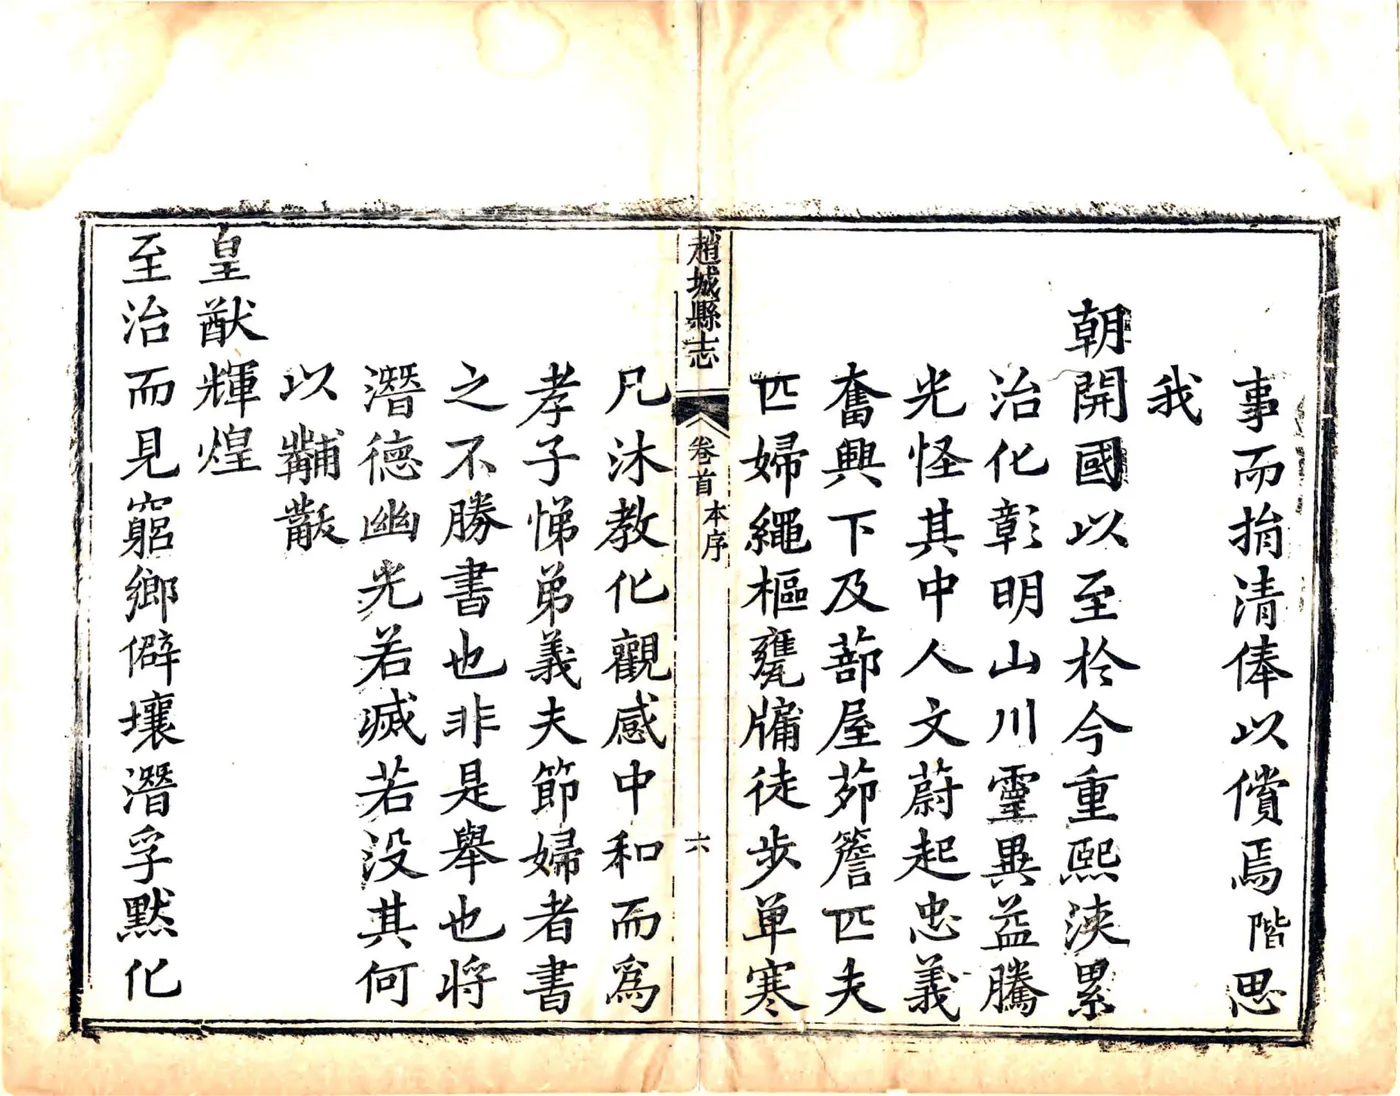 事而捐清俸以償焉階思
我
朝開國以至於今重熙浹累
治化彰明山川靈異益騰
光怪其中人文蔚起忠義
奮興下及蔀屋茆簷匹夫
匹婦繩樞甕牖徒步單寒
趙城縣志
卷首
本序
六
凡沐教化觀感中和而爲
孝子悌弟義夫節婦者書
之不勝書也非是舉也將
潛德幽光若滅若没其何
以黼黻
皇猷輝煌
至治而見窮鄉僻壤潛孚默化